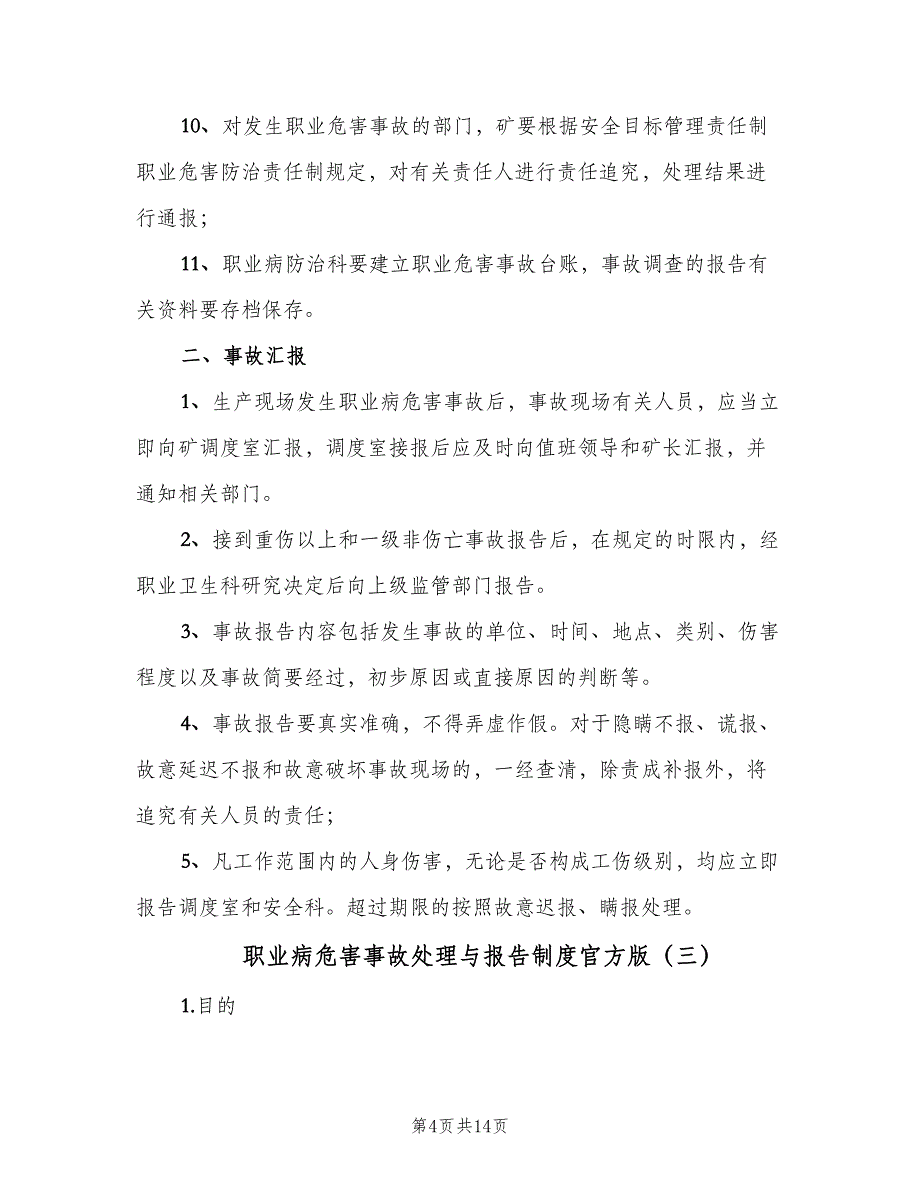 10、对发生职业危害事故的部门，矿要根据安全目标管理责任制
职业危害防治责任制规定，对有关责任人进行责任追究，处理结果进
行通报；
11、职业病防治科要建立职业危害事故台账，事故调查的报告有
关资料要存档保存。
二、事故汇报
1、生产现场发生职业病危害事故后，事故现场有关人员，应当立
即向矿调度室汇报，调度室接报后应及时向值班领导和矿长汇报，并
通知相关部门。
2、接到重伤以上和一级非伤亡事故报告后，在规定的时限内，经
职业卫生科研究决定后向上级监管部门报告。
3、事故报告内容包括发生事故的单位、时间、地点、类别、伤害
程度以及事故简要经过，初步原因或直接原因的判断等。
4、事故报告要真实准确，不得弄虚作假。对于隐瞒不报、谎报、
故意延迟不报和故意破坏事故现场的，一经查清，除责成补报外，将
追究有关人员的责任；
5、凡工作范围内的人身伤害，无论是否构成工伤级别，均应立即
报告调度室和安全科。超过期限的按照故意迟报、瞒报处理。
职业病危害事故处理与报告制度官方版（三）
1.目的
第4页共14页